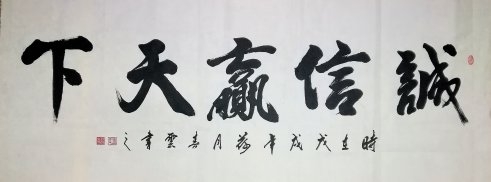 誠信贏天下
時在戊戌年月雲書之